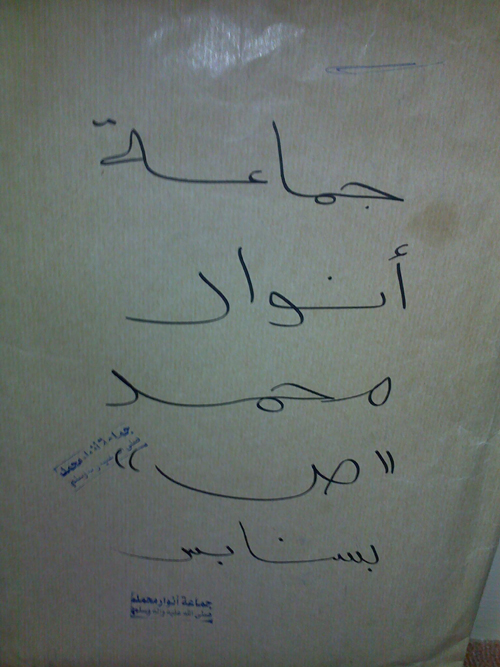 جماعة
أنوار
محمد
"ص"
بسنابس
جماعة أنوار محمد
جماعة أنوار محمد
صلى الله عليه وآله وسلم